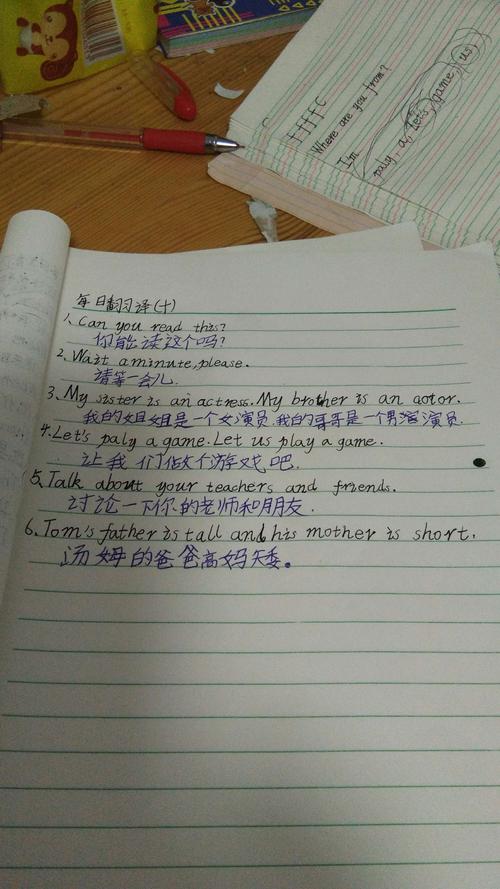 Where are you from?
I'm
paly. a. Let's, game, us
每日翻译(十)
1、Can you read this?
你能读这个吗?
2、Wait a minute, please.
请等一会儿.
3、My sister is an actress. My brother is an aotor.
我的姐姐是一个女演员.我的哥哥是一个男演员.
4.Let's paly a game. Let us play a game.
让我们做个游戏吧.
5、Talk about your teachers and friends.
讨论一下你的老师和朋友.
6、Tom's father is tall and his mother is short.
汤姆的爸爸高妈矮。